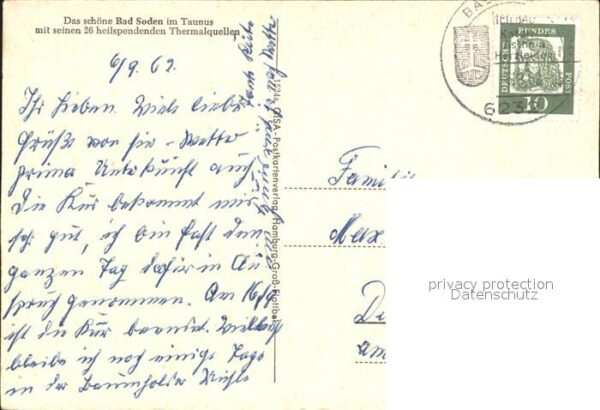 Das schöne Bad Soden im Taunus
mit seinen 26 heilspendenden Thermalquellen
6/9. 62.
Ihr Lieben. Viele liebe
Grüße von hier – Wetter
prima Unterkunft auch
Die Kur bekommt mir
sehr gut, ich bin fast den
ganzen Tag dafür in An
spruch genommen. Am 16/9
ist die Kur beendet. Vielleicht
bleibe ich noch einige Tage
in der Baumholder Mühle
GISA-Postkartenverlag, Hamburg-Groß-Flottbek
Familie
Max
am
BA
623
DEUTSCHE BUNDESPOST
10
privacy protection
Datenschutz